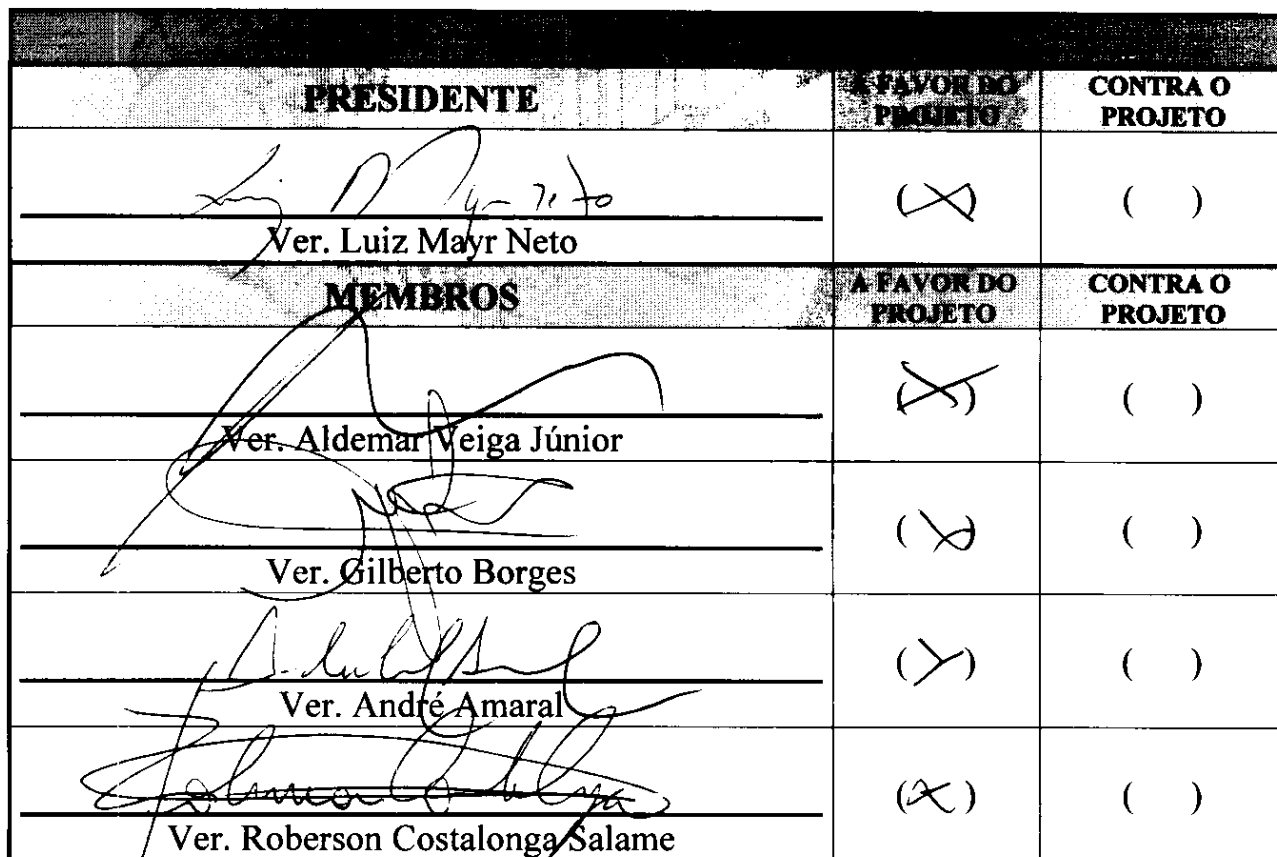 PRESIDENTE
A FAVOR DO
PROJETO
CONTRA O
PROJETO
( X )
( )
Ver. Luiz Mayr Neto
MEMBROS
A FAVOR DO
PROJETO
CONTRA O
PROJETO
( X )
( )
Ver. Aldemar Veiga Júnior
( X )
( )
Ver. Gilberto Borges
( X )
( )
Ver. André Amaral
( X )
( )
Ver. Roberson Costalonga Salame